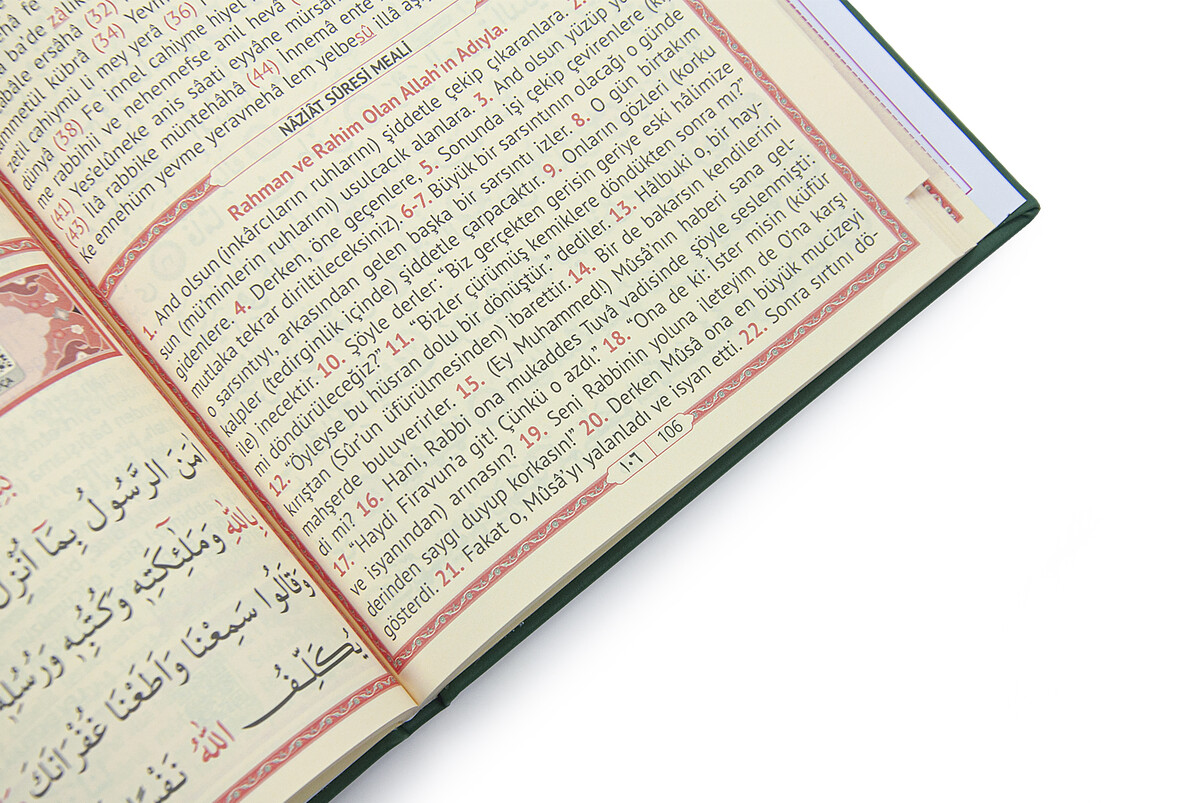 zâlik
(32) Yevm
ersâhâ
mmetül kübrâ (34)
(36)
ezetil cahiymü li mey yerâ
Fe innel cahiyme hiyel
(38)
me rabbihii ve nehennefse anil hevâ
(41) Yes'elûneke anis sâati eyyâne mürsâ
(43) İlâ rabbike müntehâhâ (44) İnnemâ ente
Ke ennehüm yevme yeravnehâ lem yelbesû illâ
NÂZİÂT SÛRESİ MEALİ
Rahman ve Rahim Olan Allah'ın Adıyla.
1. And olsun (inkârcıların ruhlarını) şiddetle çekip çıkaranlara. 2.
sun (müminlerin ruhlarını) usulcacık alanlara. 3. And olsun yüzüp
gidenlere. 4. Derken, öne geçenlere, 5. Sonunda işi çekip çevirenlere
mutlaka tekrar diriltileceksiniz). 6-7. Büyük bir sarsıntının olacağı o günde
o sarsıntıyı, arkasından gelen başka bir sarsıntı izler. 8. O gün birtakım
kalpler (tedirginlik içinde) şiddetle çarpacaktır. 9. Onların gözleri (korku
ile) inecektir. 10. Şöyle derler: “Biz gerçekten gerisin geriye eski hâlimize
mi döndürüleceğiz?” 11. “Bizler çürümüş kemiklere döndükten sonra mı?”
12. “Öyleyse bu hüsran dolu bir dönüştür.” dediler. 13. Hâlbuki o, bir hay-
kırıştan (Sûr'un üfürülmesinden) ibarettir. 14. Bir de bakarsın kendilerini
mahşerde buluverirler. 15. (Ey Muhammed!) Mûsânın haberi sana gel-
di mi? 16. Hani, Rabbi ona mukaddes Tuvâ vadisinde şöyle seslenmişti:
17. “Haydi Firavun'a git! Çünkü o azdı. 18. “Ona de ki: İster misin (küfür
ve isyanından) arınasın? 19. Seni Rabbinin yoluna ileteyim de Ona karşı
derinden saygı duyup korkasın!” 20. Derken Mûsâ ona en büyük mucizeyi
gösterdi. 21. Fakat o, Mûsâ'yı yalanladı ve isyan etti. 22. Sonra sırtını dö-
١٠٦ 106
اٰمَنَ الرَّسُولُ بِمَٓا اُنْزِلَ
بِاللّٰهِ وَمَلٰٓئِكَتِه۪ وَكُتُبِه۪ وَرُسُلِه۪
وَقَالُوا سَمِعْنَا وَاَطَعْنَا غُفْرَانَكَ
يُكَلِّفُ اللّٰهُ نَفْسًا